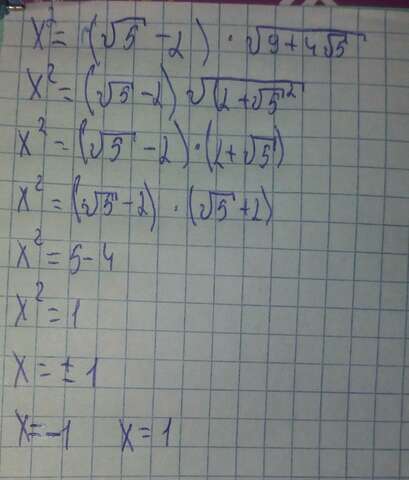 x² = (√5 - 2) · √9 + 4√5
x² = (√5 - 2) √(2 + √5²
x² = (√5 - 2) · (2 + √5)
x² = (√5 - 2) · (√5 + 2)
x² = 5 - 4
x² = 1
x = ± 1
x = -1 x = 1